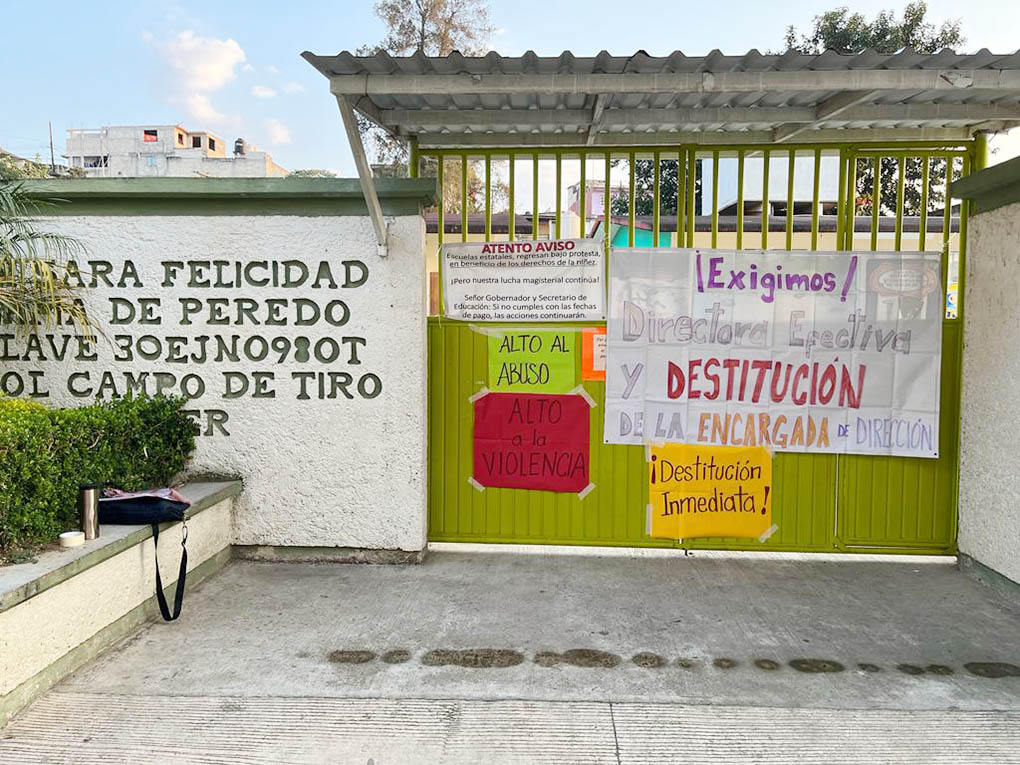 ZARA FELICIDAD
DE PEREDO
LAVE 30EJN0980T
OL CAMPO DE TIRO
ER
ATENTO AVISO
Escuelas estatales, regresan bajo protesta,
en beneficio de los derechos de la niñez.
¡Pero nuestra lucha magisterial continúa!
Señor Gobernador y Secretario de
Educación: Si no cumples con las fechas
de pago, las acciones continuarán.
ALTO AL
ABUSO
ALTO
a la
VIOLENCIA
¡Exigimos!
Directora Efectiva
Y DESTITUCIÓN
DE LA ENCARGADA DE DIRECCIÓN
¡Destitución
Inmediata!